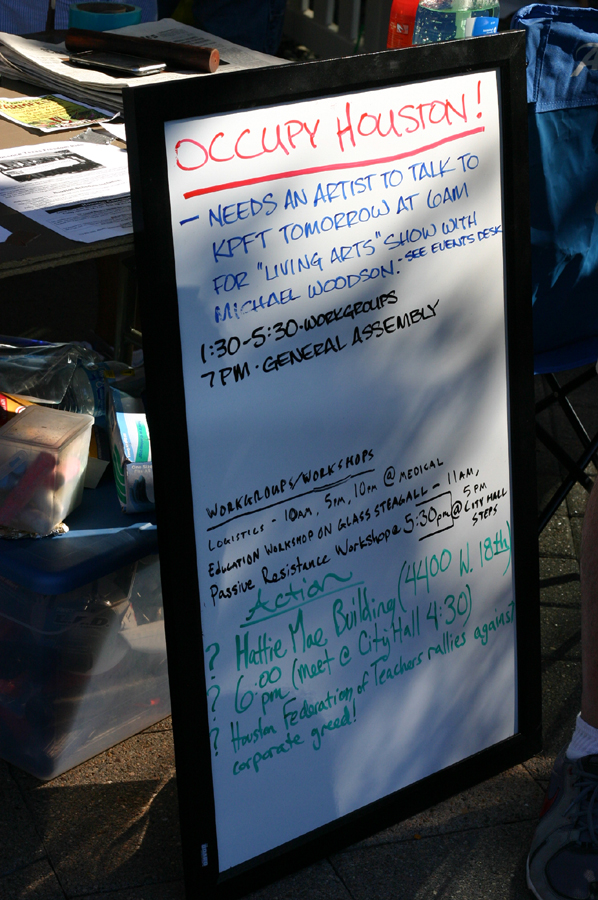 OCCUPY HOUSTON!
- NEEDS AN ARTIST TO TALK TO
KPFT TOMORROW AT 6AM
FOR "LIVING ARTS" SHOW WITH
MICHAEL WOODSON. - SEE EVENTS DESK
1:30-5:30 · WORKGROUPS
7PM · GENERAL ASSEMBLY
WORKGROUPS/WORKSHOPS
LOGISTICS - 10AM, 5PM, 10PM @ MEDICAL
EDUCATION WORKSHOP ON GLASS STEAGALL - 11AM, 5 PM
Passive Resistance Workshop @ 5:30pm @ CITY HALL STEPS
Action
? Hattie Mae Building (4400 N. 18th)
? 6:00 pm (meet @ City Hall 4:30)
? Houston Federation of Teachers rallies against
corporate greed!